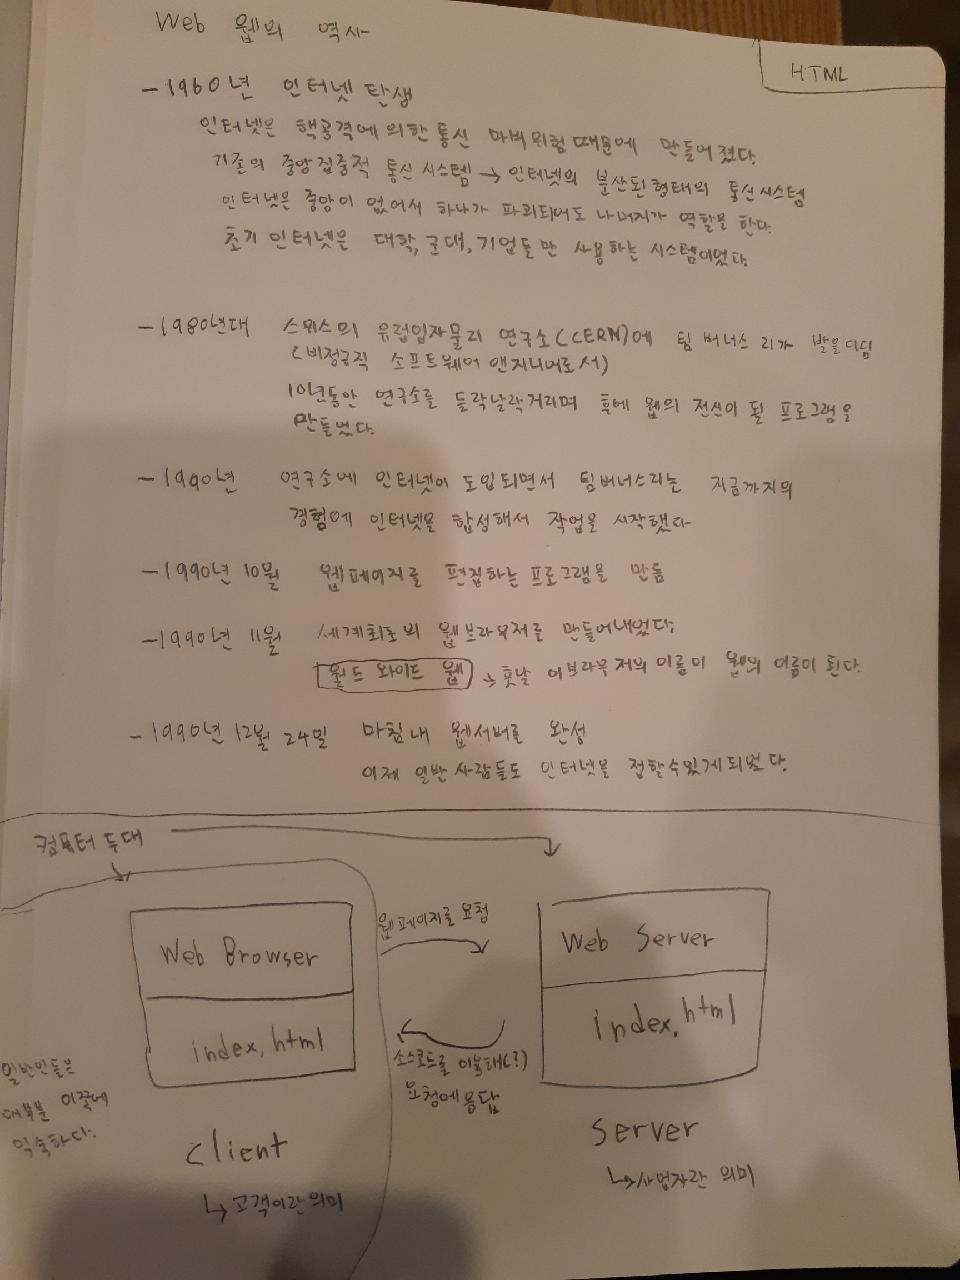 Web 웹의 역사
HTML
- 1960년 인터넷 탄생
인터넷은 핵공격에 의한 통신 마비위험 때문에 만들어 졌다.
기존의 중앙집중적 통신 시스템 → 인터넷의 분산된 형태의 통신시스템
인터넷은 중앙이 없어서 하나가 파괴되어도 나머지가 역할을 한다.
초기 인터넷은 대학, 군대, 기업들만 사용하는 시스템이었다.
- 1980년대 스위스의 유럽입자물리 연구소(CERN)에 팀 버너스 리가 발을디딤
(비정규직 소프트웨어 엔지니어로서)
10년동안 연구소를 들락날락거리며 후에 웹의 전신이 될 프로그램을
만들었다.
- 1990년 연구소에 인터넷이 도입되면서 팀버너스리는 지금까지의
경험에 인터넷을 합성해서 작업을 시작했다
- 1990년 10월 웹페이지를 편집하는 프로그램을 만듬
- 1990년 11월 세계최초의 웹브라우저를 만들어내었다.
월드 와이드 웹 → 훗날 이브라우저의 이름이 웹의 이름이 된다.
- 1990년 12월 24일 마침내 웹서버를 완성
이제 일반 사람들도 인터넷을 접할수있게되었다.
컴퓨터 두대
웹페이지를 요청
Web Browser
Web Server
index.html
index.html
소스코드를 이용해(?)
요청에응답
일반인들은
대부분 이쪽에
익숙하다.
Client
↳ 고객이란의미
Server
↳ 사업자란 의미